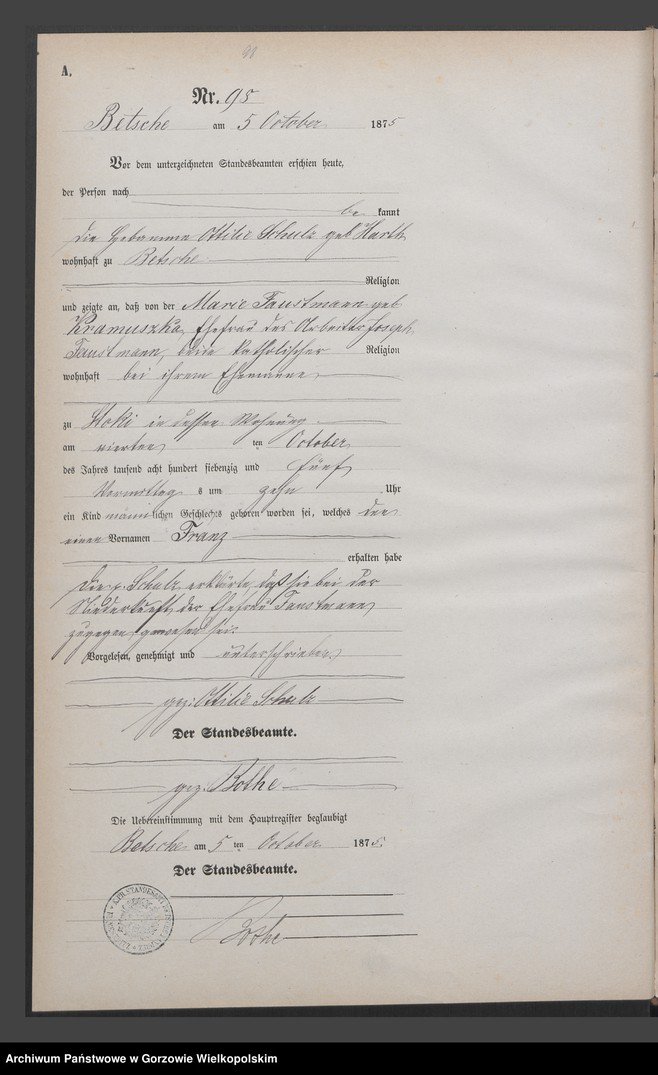 A.
Nr. 95
Betsche am 5 October 1875
Vor dem unterzeichneten Standesbeamten erschien heute,
der Person nach
be kannt
die Hebamme Ottilie Schulz geb Harth
wohnhaft zu Betsche
Religion
und zeigte an, daß von der Marie Faustmann geb
Kramuszka, Ehefrau des Arbeiter Joseph
Faustmann, beide katholischer Religion
wohnhaft bei ihrem Ehemanne
zu Stoki in dessen Wohnung
am vierten ten October
des Jahres tausend acht hundert siebenzig und fünf
Vormittag s um zehn Uhr
ein Kind männlichen Geschlechts geboren worden sei, welches den
einen Vornamen Franz
erhalten habe
Die p. Schulz erklärte, daß sie bei der
Niederkunft der Ehefrau Faustmann
zugegen gewesen sei.
Vorgelesen, genehmigt und unterschrieben
gez: Ottilie Schulz
Der Standesbeamte.
gez. Bothe
Die Uebereinstimmung mit dem Hauptregister beglaubigt
Betsche am 5 ten October 1875.
Der Standesbeamte.
Bothe
Archiwum Państwowe w Gorzowie Wielkopolskim